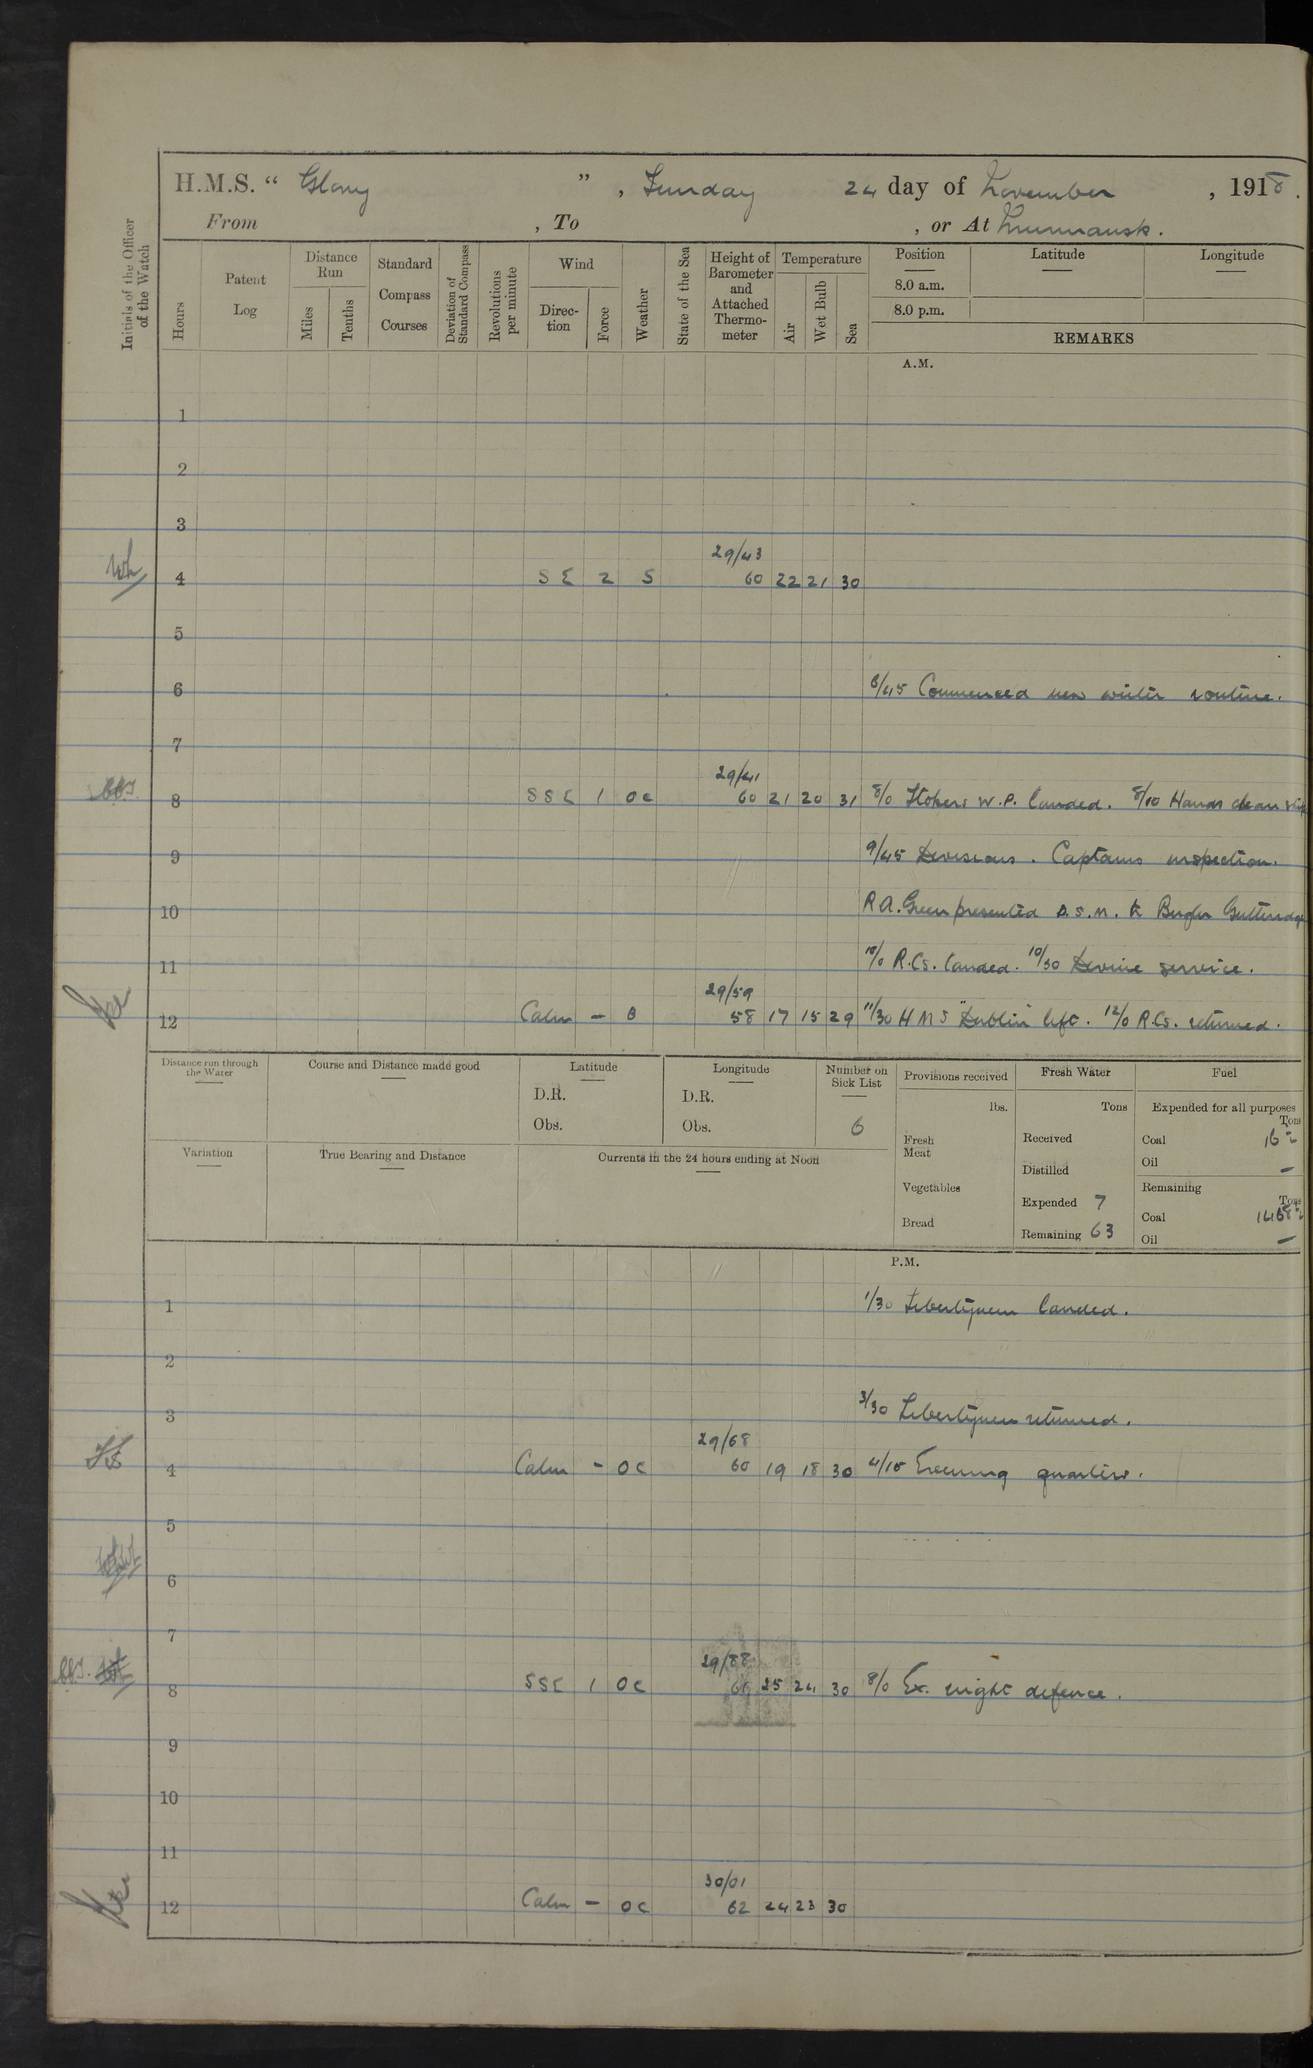 H.M.S. “ Glory ” , Sunday 24 day of November , 1918.
From , To , or At Murmansk.
Initials of the Officer of the Watch
Hours
Patent Log
Distance Run
Miles
Tenths
Standard Compass Courses
Deviation of Standard Compass
Revolutions per minute
Wind
Direction
Force
Weather
State of the Sea
Height of Barometer and Attached Thermometer
Temperature
Air
Wet Bulb
Sea
Position
8.0 a.m.
8.0 p.m.
Latitude
Longitude
REMARKS
A.M.
1
2
3
29/43
4 SE 2 S 60 22 21 30
5
6 6/45 Commenced new winter routine.
7
29/41
8 SSE 1 OC 60 21 20 31 8/0 Stokers W.P. landed. 8/10 Hands clean ship
9 9/45 Divisions. Captains inspection.
10 R.A. Green presented D.S.M. to Bugler Gutteridge
11 10/0 R.Cs. landed. 10/30 Devine service.
29/59
12 Calm - B 58 17 15 29 11/30 HMS "Dublin" left. 12/0 R.Cs. returned.
Distance run through the Water
Course and Distance made good
Latitude
D.R.
Obs.
Longitude
D.R.
Obs.
Number on Sick List
6
Provisions received
lbs.
Fresh Meat
Vegetables
Bread
Fresh Water
Tons
Received
Distilled
Expended 7
Remaining 63
Fuel
Expended for all purposes
Tons
Coal 16
Oil -
Remaining
Tons
Coal
Oil -
Variation
True Bearing and Distance
Currents in the 24 hours ending at Noon
P.M.
1 1/30 Libertymen landed.
2
3 3/30 Libertymen returned.
29/68
4 Calm - OC 60 19 18 30 4/15 Evening quarters.
5
6
7
29/88
8 SSE 1 OC 25 24 30 8/0 Ex. night defence.
9
10
11
30/01
12 Calm - OC 62 24 23 30